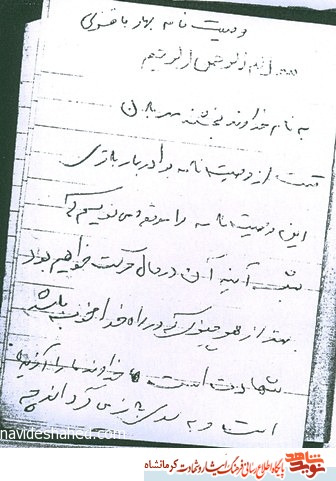 وصیت نامه بهار باقری
بسم الله الرحمن الرحیم
به نام خداوند بخشنده مهربان
از وصیت نامه برادر
این وصیت نامه را موقعی می نویسم که
شب آینه آن در حال حرکت خواهیم بود
بهتر از هر چیزی که در راه خدا خوب باشد
شهادت است خداوند ما را آفریده
است و به سوی باز می گرداند چه
navideshahed.com
نوید شاهد
پایگاه اطلاع رسانی فرهنگ ایثار و شهادت کرمانشاه